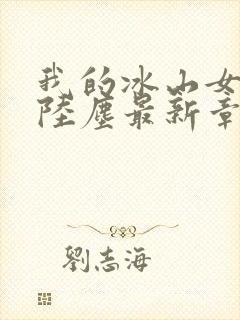 我的冰山女
陸塵最新章
劉志海